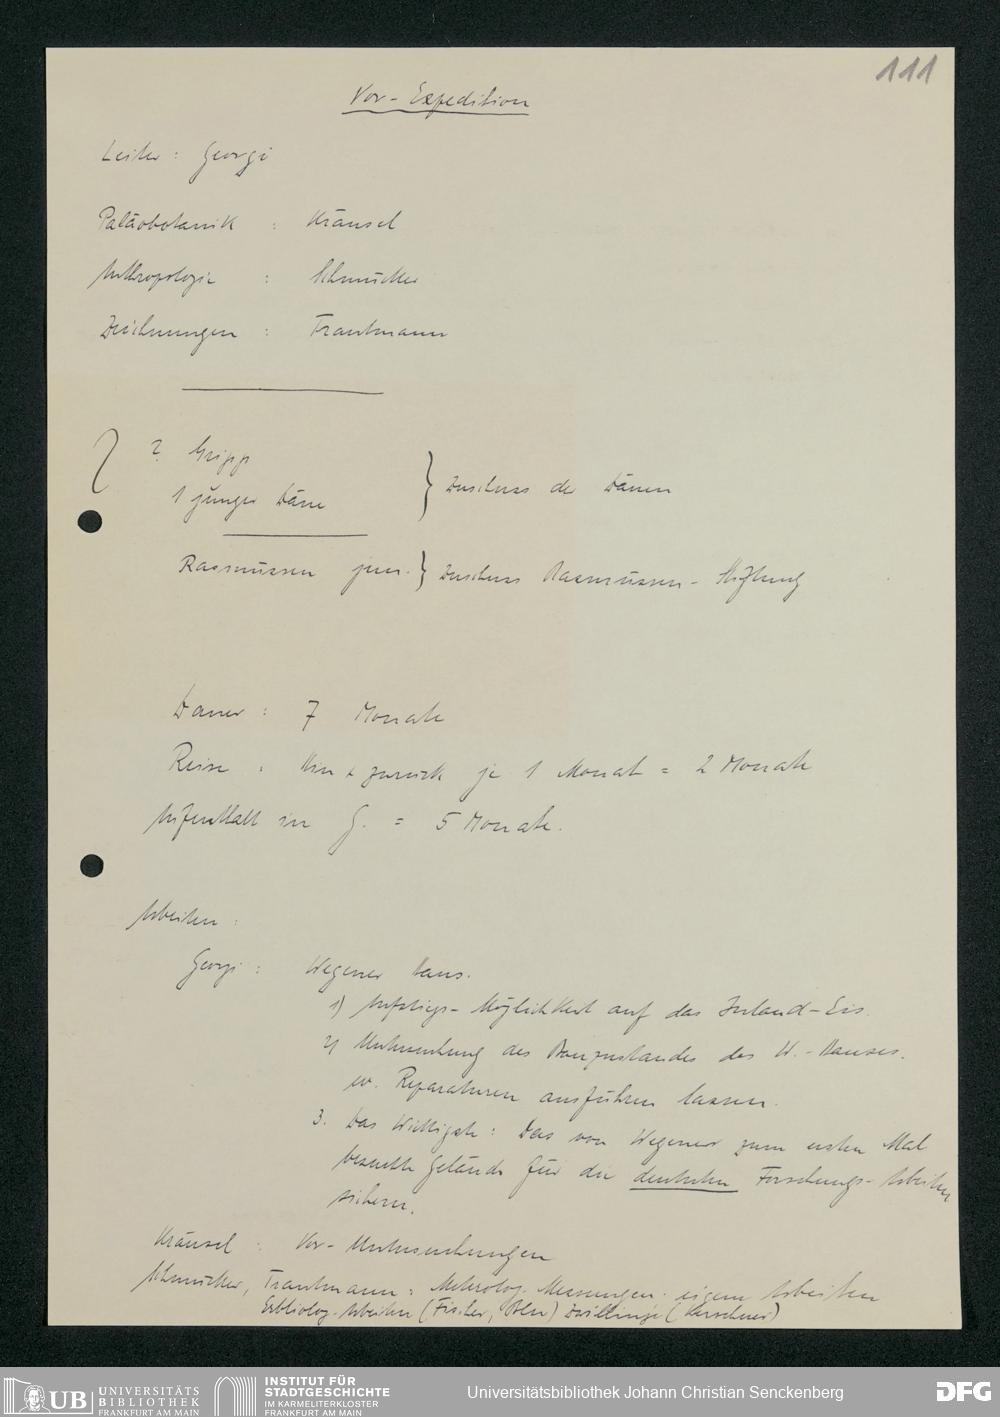 111
Vor-Expedition
Leiter : Georgi
Paläobotanik : Kräusel
Anthropologie : Schmucker
Zeichnungen : Trautmann
? Gripp
1 junger Däne } Zuschuss der Dänen
Rasmussen jun. } Zuschuss Rasmussen-Stiftung
Dauer : 7 Monate
Reise : Hin & zurück je 1 Monat = 2 Monate
Aufenthalt in G. = 5 Monate.
Arbeiten :
Georgi : Wegener Haus.
1) Aufstiegs-Möglichkeit auf das Inland-Eis.
2) Untersuchung des Bauzustandes des W.-Hauses.
ev. Reparaturen ausführen lassen.
3. Das Wichtigste : Das von Wegener zum ersten Mal
besuchte Gelände für die deutschen Forschungs-Arbeiten
sichern.
Kräusel : Vor-Untersuchungen
Schmucker, Trautmann : Meteorolog. Messungen. eigene Arbeiten
Erbbiolog. Arbeiten (Fischer, Bln) Zwillinge ( )
UB UNIVERSITÄTS
BIBLIOTHEK
FRANKFURT AM MAIN
INSTITUT FÜR
STADTGESCHICHTE
IM KARMELITERKLOSTER
FRANKFURT AM MAIN
Universitätsbibliothek Johann Christian Senckenberg
DFG